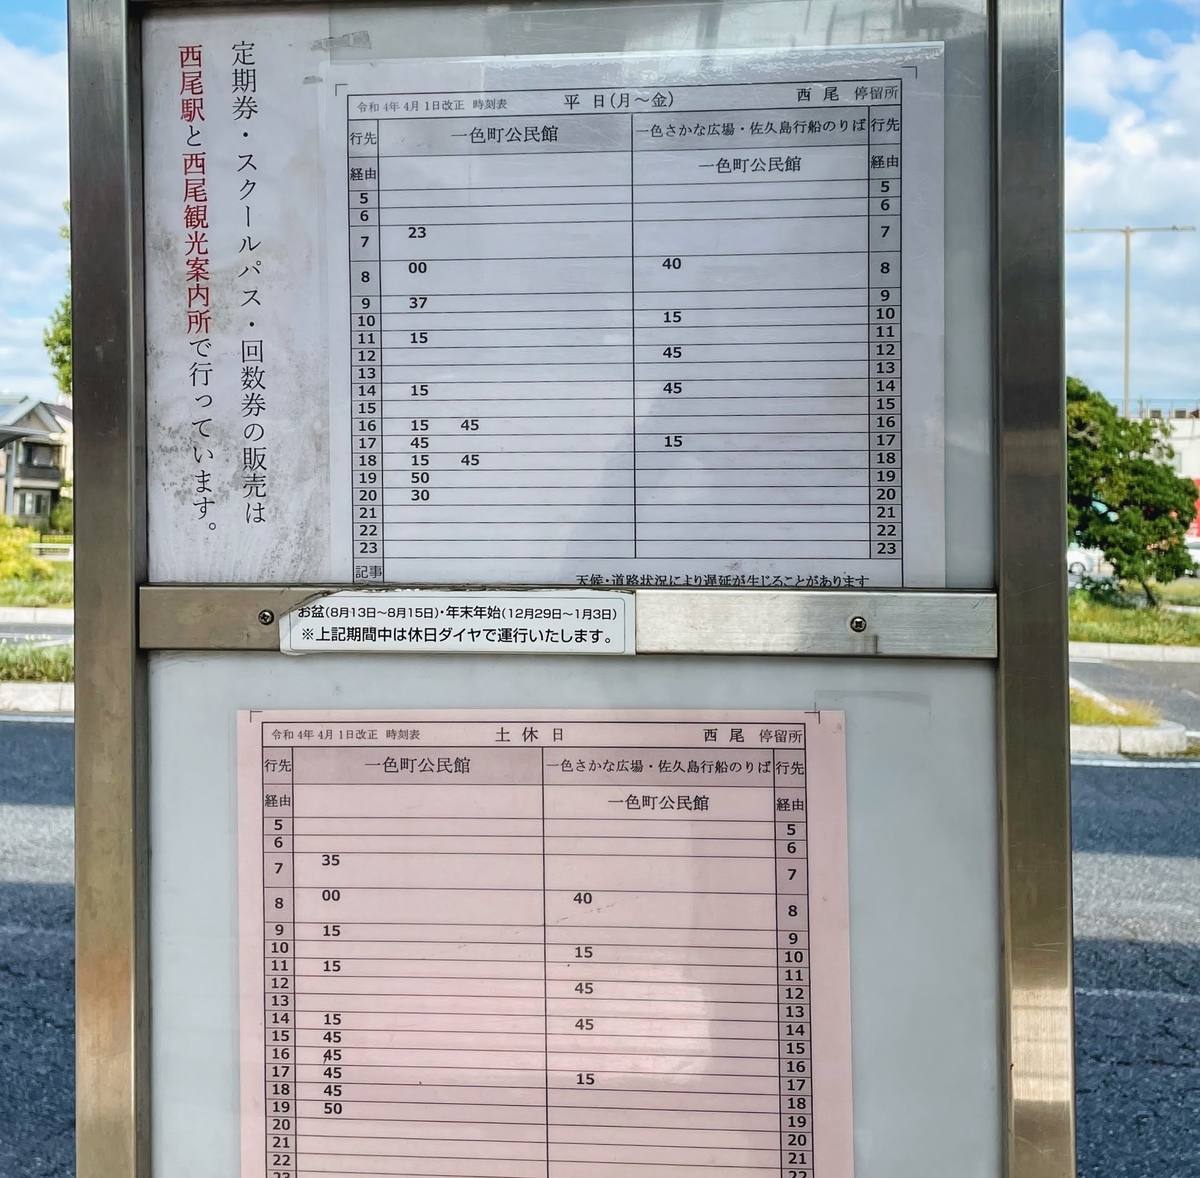 定期券・スクールパス・回数券の販売は
西尾駅と西尾観光案内所で行っています。
令和 4年 4月 1日改正 時刻表 平 日(月～金) 西 尾 停留所
行先 一色町公民館 一色さかな広場・佐久島行船のりば 行先
経由 一色町公民館 経由
5 5
6 6
7 23 7
8 00 40 8
9 37 9
10 15 10
11 15 11
12 45 12
13 13
14 15 45 14
15 15
16 15 45 16
17 45 15 17
18 15 45 18
19 50 19
20 30 20
21 21
22 22
23 23
記事 天候・道路状況により遅延が生じることがあります
お盆(8月13日～8月15日)・年末年始(12月29日～1月3日)
※上記期間中は休日ダイヤで運行いたします。
令和 4年 4月 1日改正 時刻表 土 休 日 西 尾 停留所
行先 一色町公民館 一色さかな広場・佐久島行船のりば 行先
経由 一色町公民館 経由
5 5
6 6
7 35 7
8 00 40 8
9 15 9
10 15 10
11 15 11
12 45 12
13 13
14 15 45 14
15 45 15
16 45 16
17 45 15 17
18 45 18
19 50 19
20 20
21 21
22 22
23